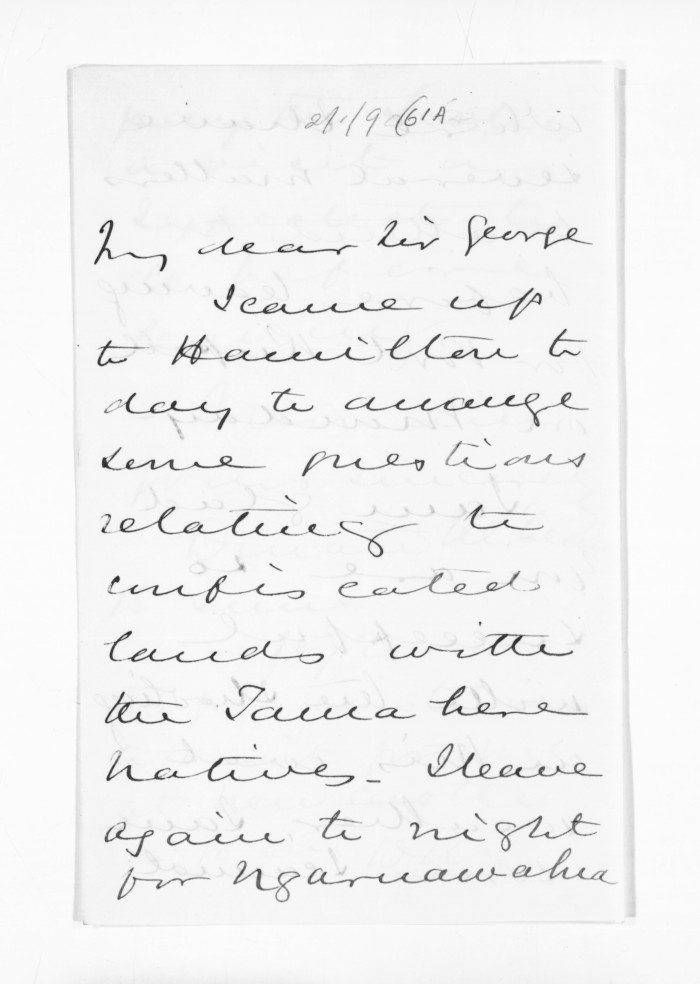 My dear Sir George
I came up
to Hamilton to
day to arrange
some questions
relating to
confis cated
lands with
the Tama here
Natives - I leave
again to night
for Ngaruawahia